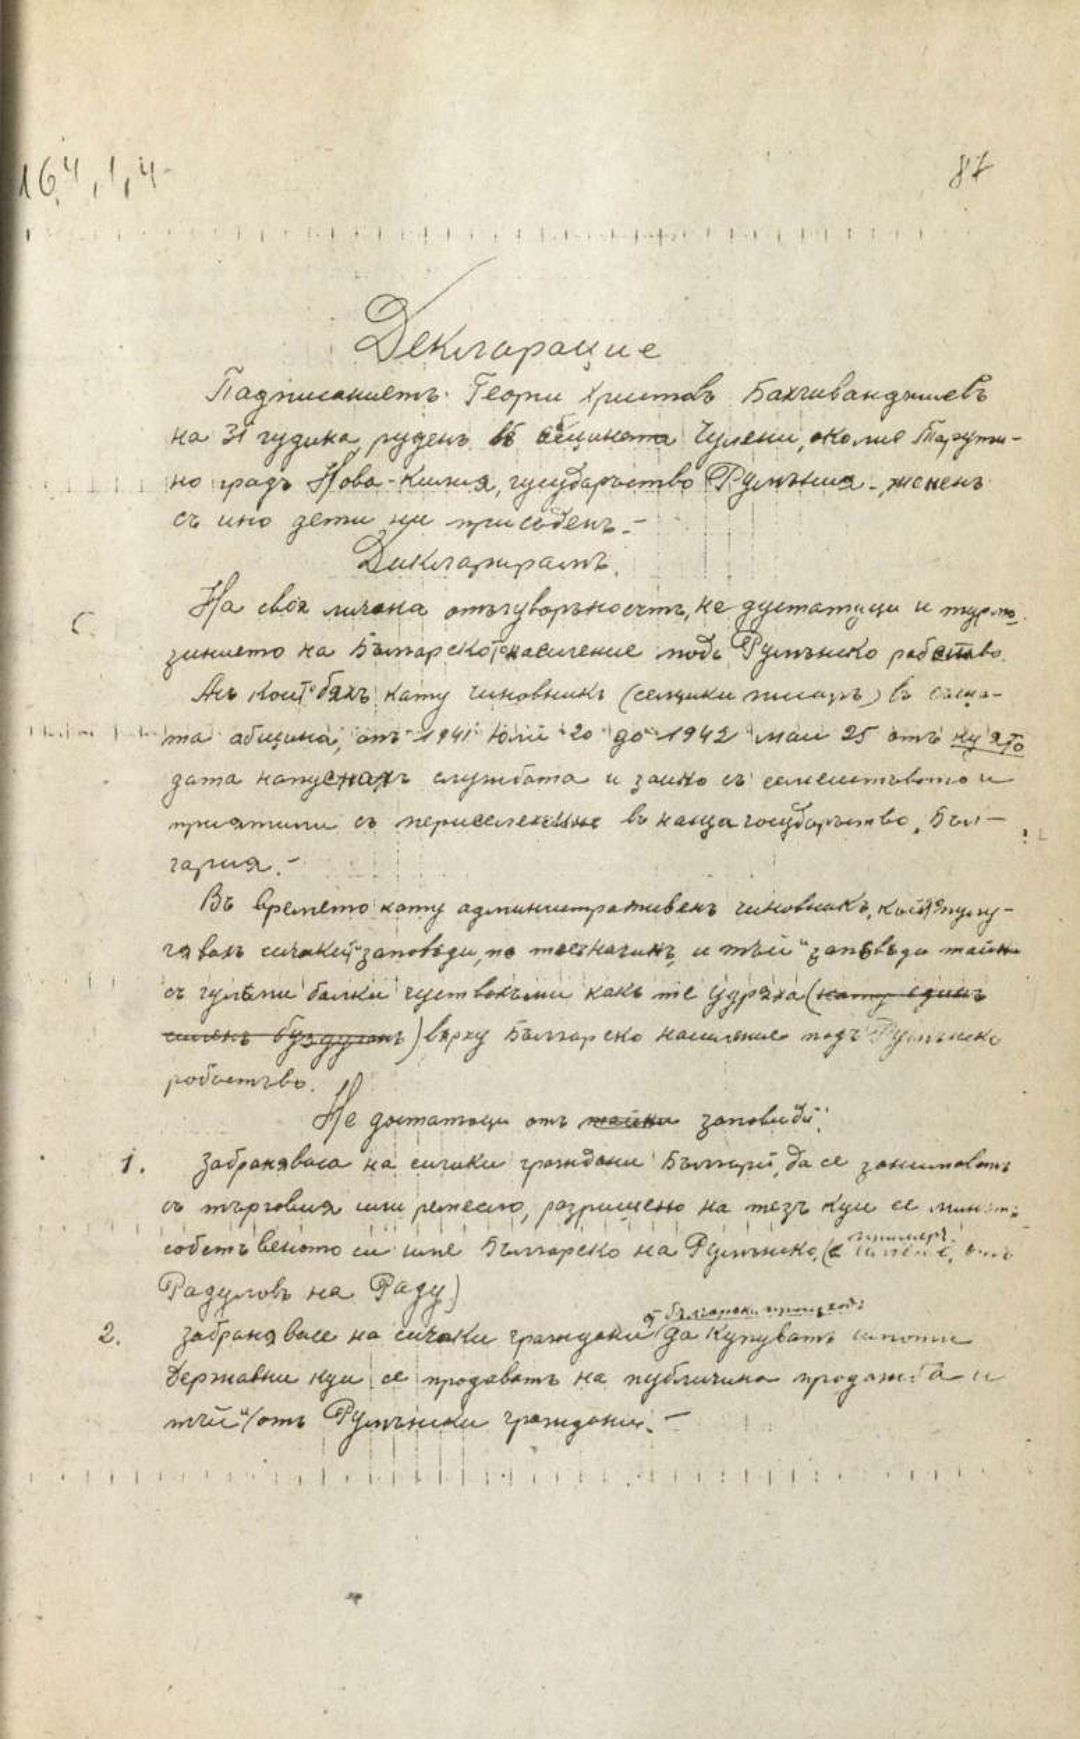 164,1,4
87
Декларацие
Падписаниетъ Георги Христовъ Бахчиванджиевъ
на 31 гудина, руденъ въ общината Чумени, околие Тарути-
но градъ Нова-Килия, гусударъство Румъния, жененъ
съ ино дети ни присъденъ.-
Дикларирамъ.
На своя личена отъгуворъность, не дустатъци и
зинието на Българскотонасиление подъ Румънско рабство.
Азъ който бяхъ кату чиновникъ (селцики писаръ) въ съща-
та абщина, отъ 1941 Юли 20 до 1942 май 25 отъ куято
дата напуснахъ службата и заино съ семеистьвото и
приятили съ периселение въ наща госудбаръство, Бъл-
гария.-
Въ времето кату административенъ чиновникъ, който пулу-
чавахъ сичакий заповеди, по тоезначинъ, и тъй заповъди тайни
съ гулъми балки чуствовахъми какъ те ударяха (катур единъ
силенъ буздуганъ) върху Българско насиление подъ Румънско
робастъво.
Не достатоци отъ тайни заповиди:
1. Забраняваса на сички граждани Българи, да се заниматватъ
съ търговия или ремесло, разришено на тезъ куи се
собстъвеното си име Българско на Румънско, (с пример. отъ
Радуловъ на Раду)
2. забранявасе на сичаки граждани от български произход: да купуватъ имоти
Държавни куи се продаватъ на публичина продажба и
тъй/отъ Румънски граждани.-